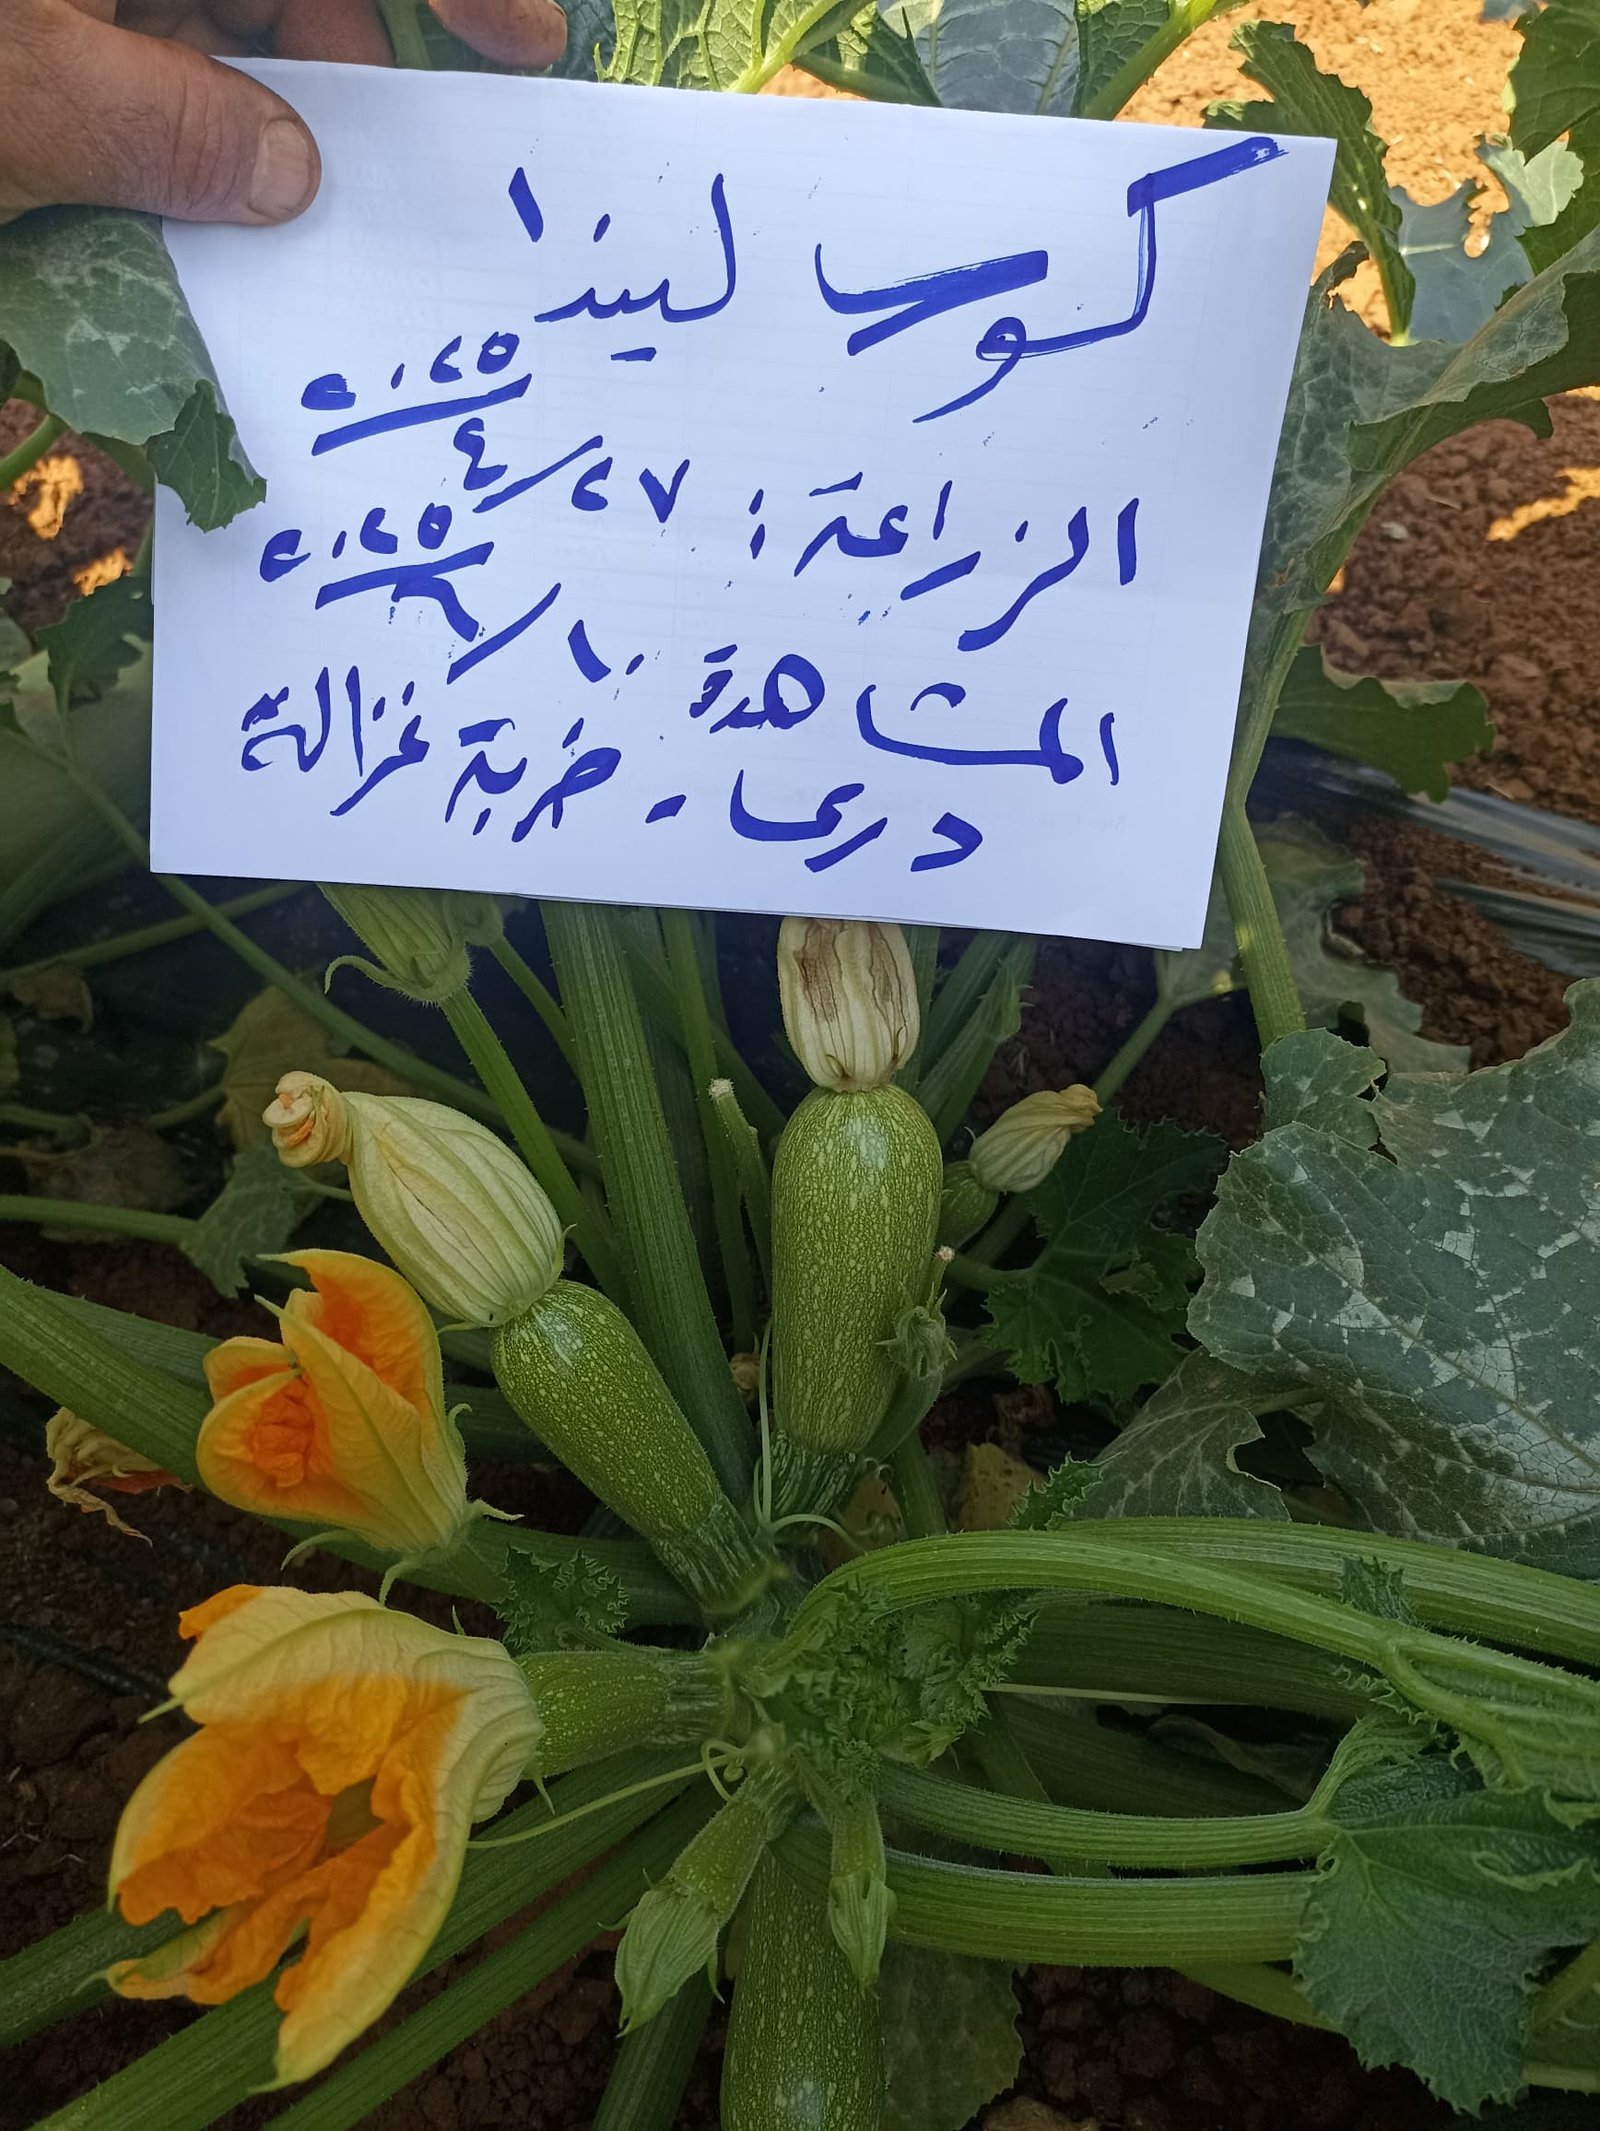 كوسا ليندا
الزراعة: ٢٧/٤/٢٠٢٥
المشاهدة ١٠/٦/٢٠٢٥
درعا - خربة غزالة